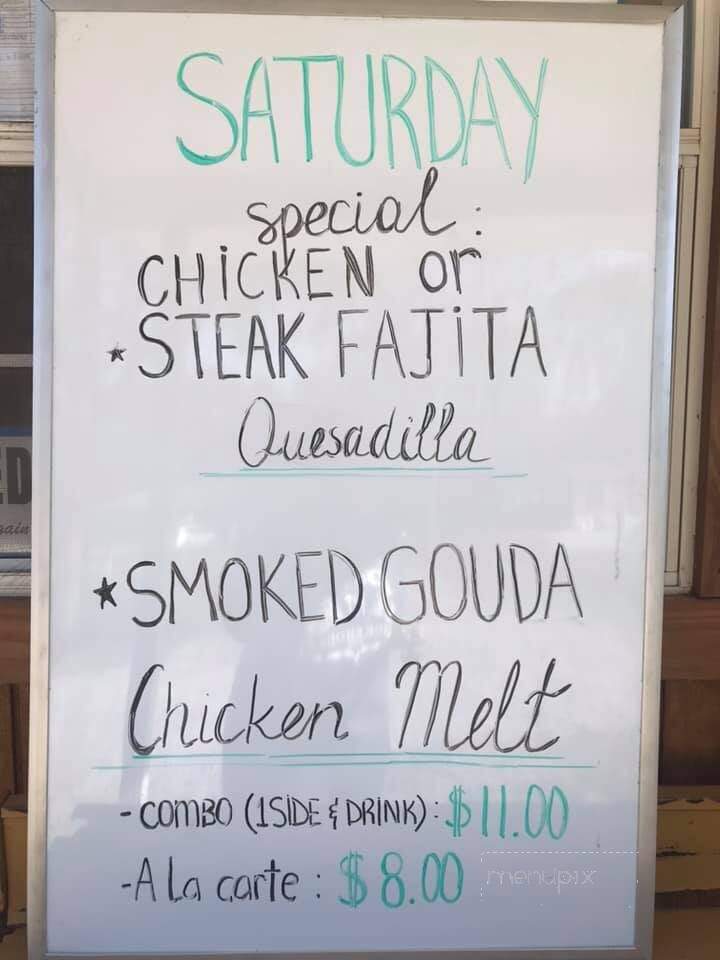 SATURDAY
special:
CHiCKEN or
★ STEAK FAJiTA
Quesadilla
★ SMOKED GOUDA
Chicken Melt
- COMBO (1SIDE & DRINK): $11.00
- A La carte: $8.00
menupix
ED
gain